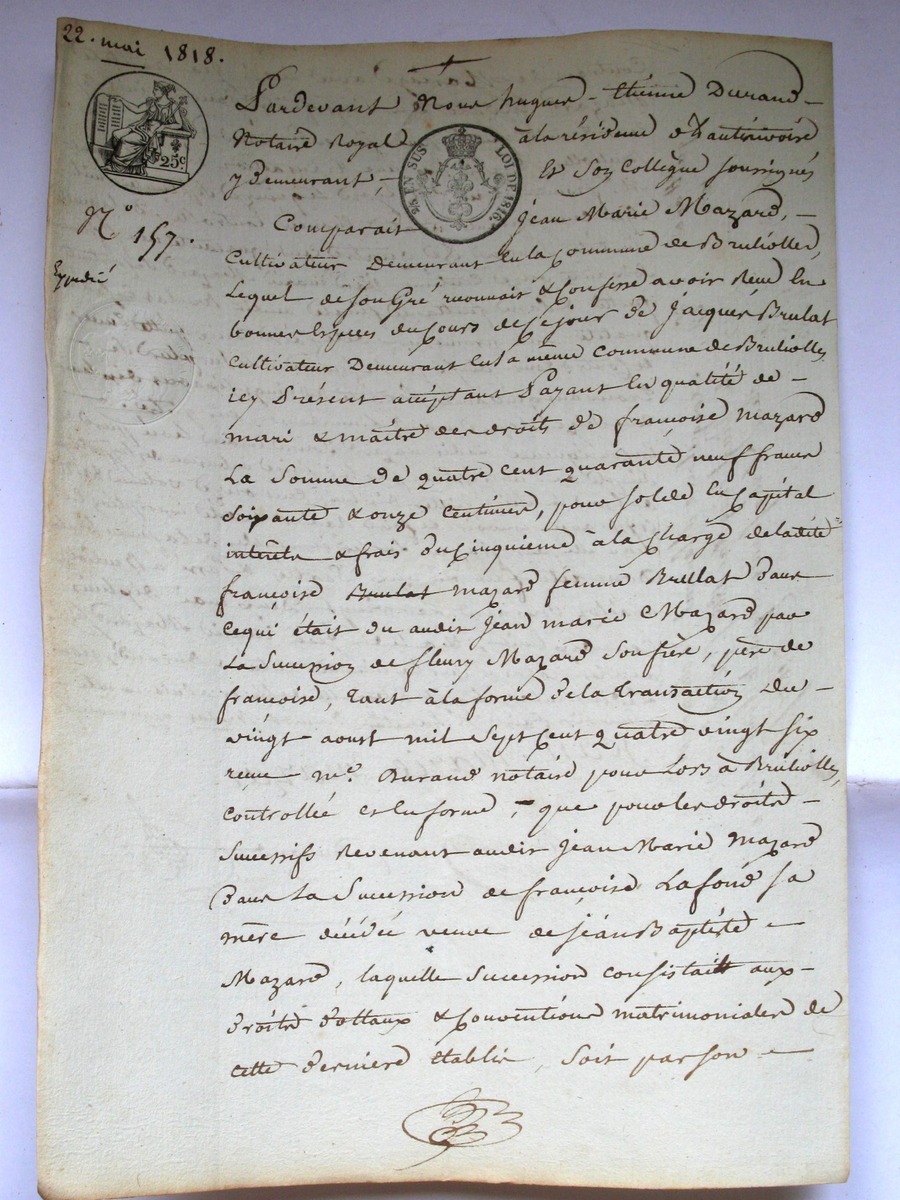 22. mai 1818.
Pardevant Nous hugues - étienne Durand -
Notaire Royal à la résidence d'hauterivoire
y Demeurant, - Et Son Collègue soussignés
25c
EN SUS LOI DE 1816.
N° 157.
Expedié
Comparait jean Marie Mazard, -
Cultivateur Demeurant En la Commune de Brulioller,
Lequel de son Gré reconnait & Confesse avoir Reçu En
bonnes Espèces du Cours de Ce jour De jacques Brulat
Cultivateur Demeurant En la même Commune de Brulioller,
icy Présent acceptant Payant En qualité de -
mari & maître des droits De françoise mazard
La Somme de quatre cent quarante neuf francs
Soixante & onze Centimes, pour solde En Capital
intérêts & frais Du Cinquieme à la Charge de ladite
françoise Brulat mazard femme Brullat Dans
Ce qui était du audit jean marie Mazard par
La Succession de fleury Mazard Son frère, père de
françoise, tant à la forme De la transaction Du -
vingt aoust mil Sept Cent quatre vingt six
reçue me. Durand notaire pour Lors à Brulioller,
Controllée est En forme, - que pour les droits -
Successifs Revenant audit jean Marie Mazard
Dans La Succession de françoise Lafond sa
mère décédée veuve de jean Baptiste -
Mazard, laquelle Succession Consistait aux -
droits dottaux & Conventions matrimoniales de
cette derniere Etablis, Soit par son -